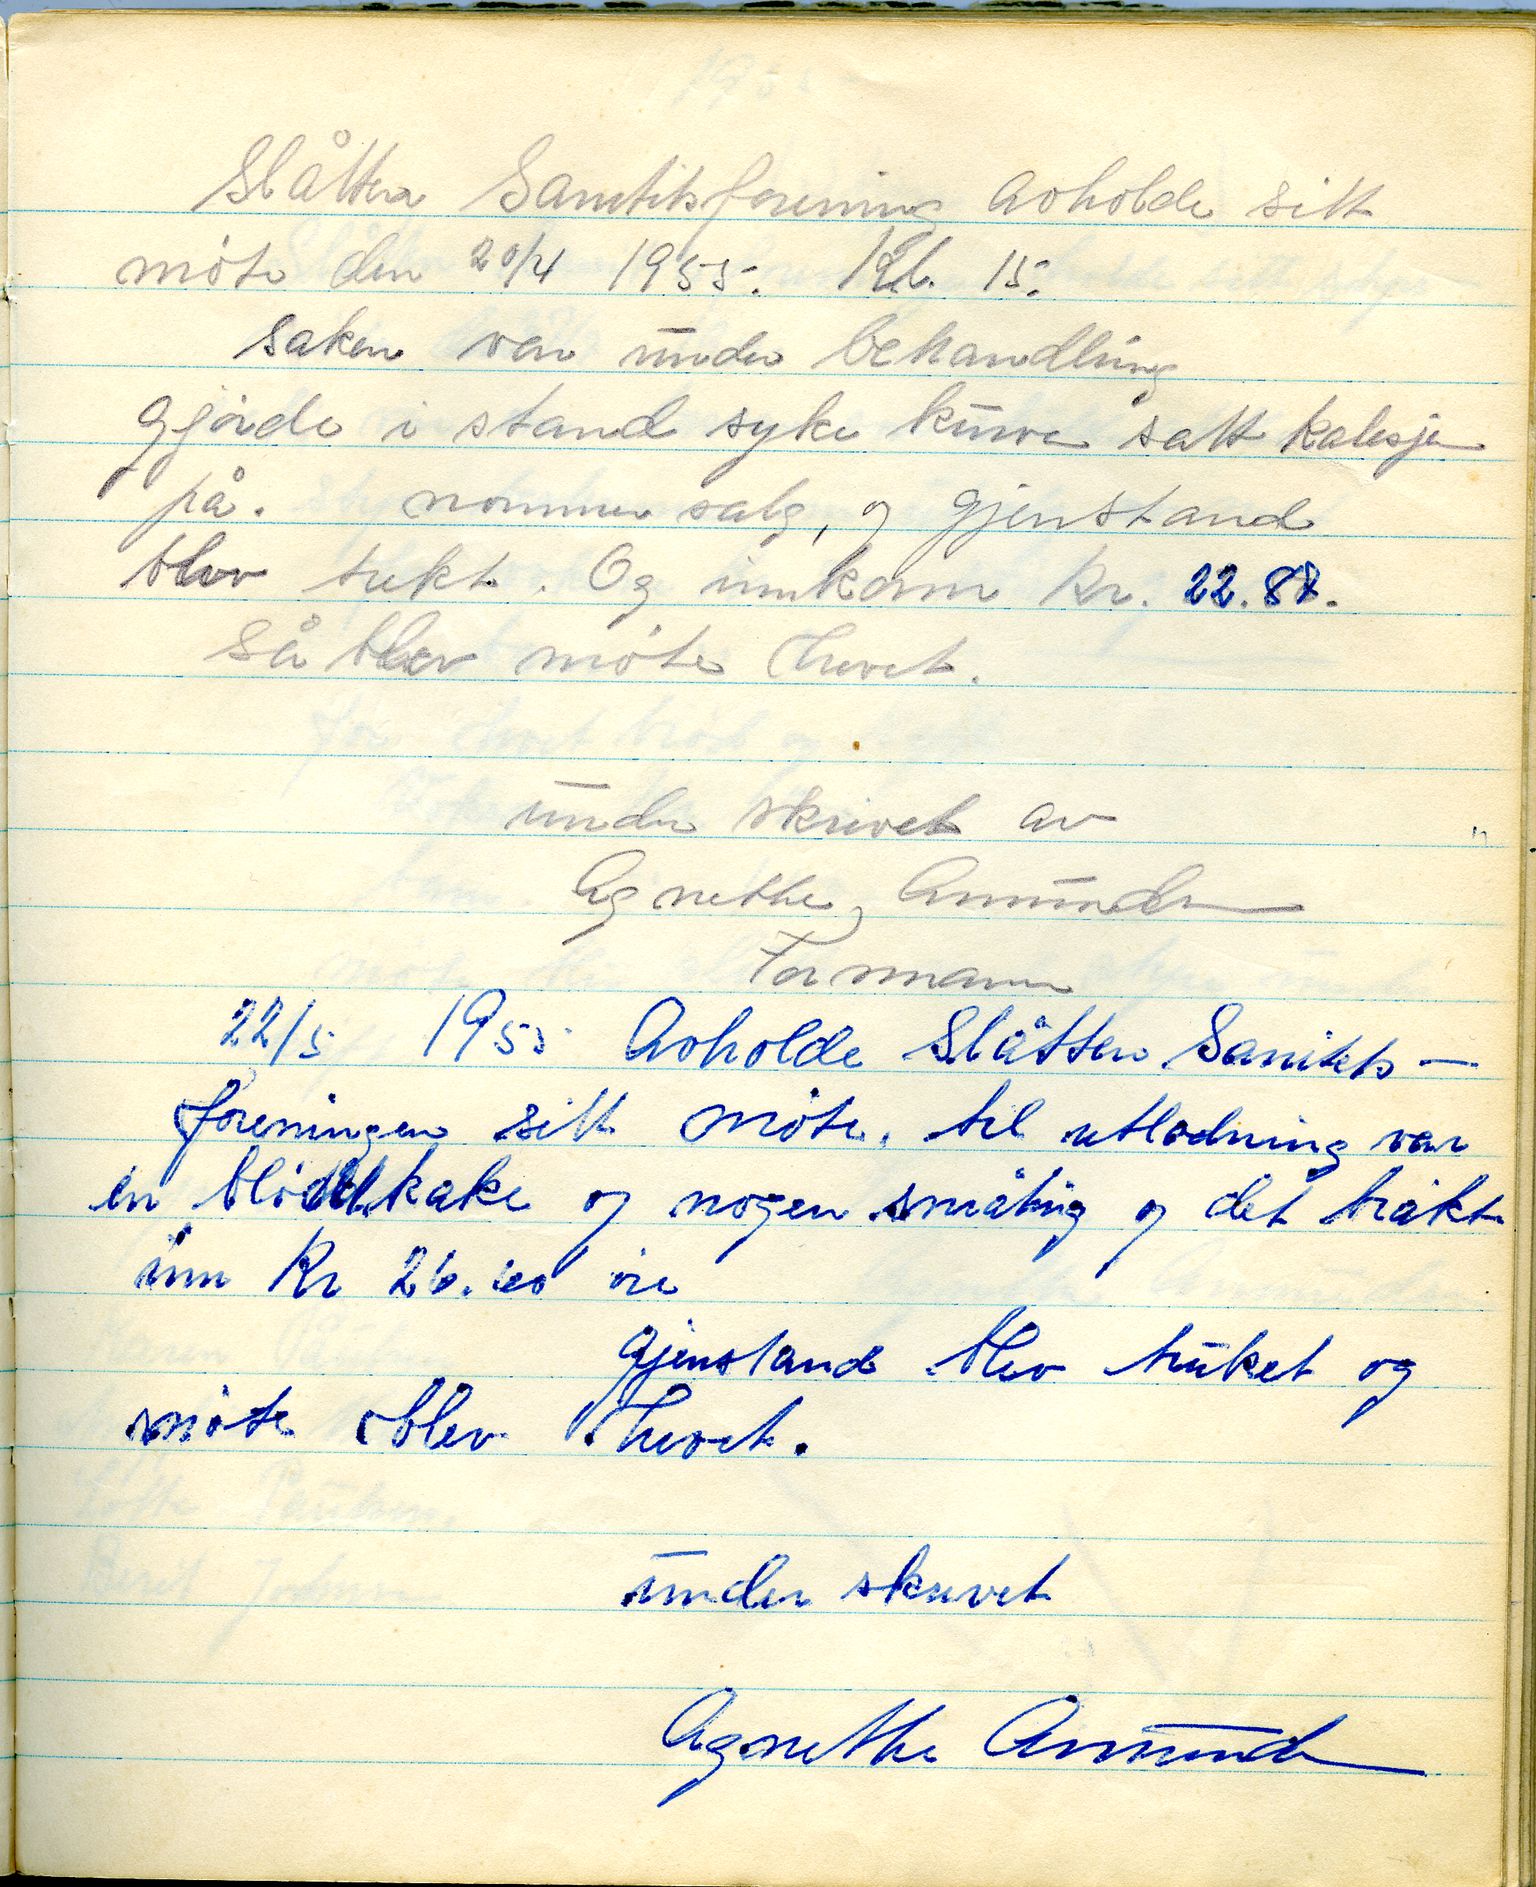 Slåtten Sanitetsforening avholde sitt
möte den 20/4 1955. Kl. 15.
saken var ūnder behandling
gjörde i stand syke kūrve satt kalesje
på. nommer salg, og gjenstand
blev trekt. Og innkom Kr. 22.88.
Så blev möte hevet.
ūnder skrevet av
Agnethe Amūndsen
Formann
22/5 1955 Avholde Slåtten Sanitets-
foreningen sitt möte. til utlodning var
en blödtkake og nogen småting og det bråkte
inn Kr 26.60 öre
gjenstand blev trūket og
möte blev hevet.
ūnder skrevet
Agnethe Amūnds